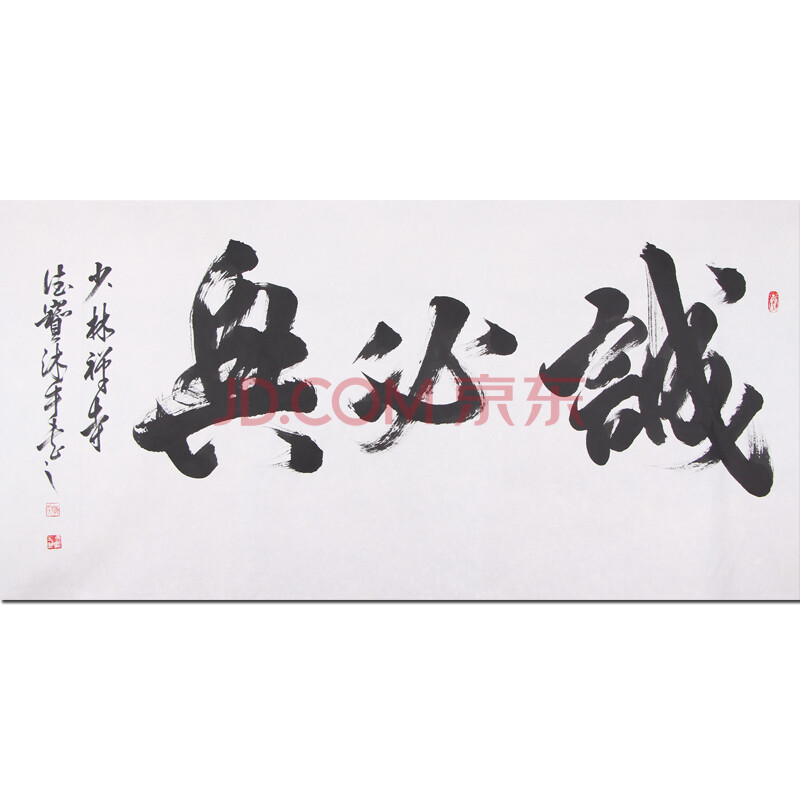 誠必興
少林禪寺
德寶沐手書之
JD.COM 京东